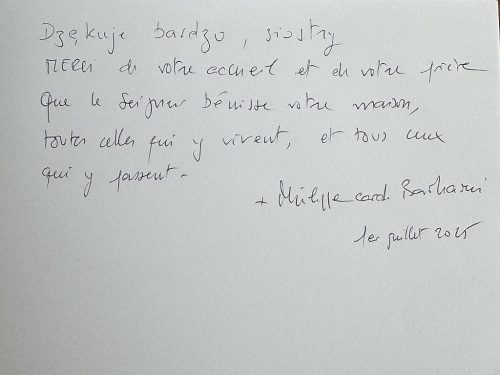 Dzękuje bardzo, siostry
MERCI de votre accueil et de votre prière
Que le Seigneur bénisse votre maison,
toutes celles qui y vivent, et tous ceux
qui y passent -
+ Philippe card. Barbarin
1er juillet 2025